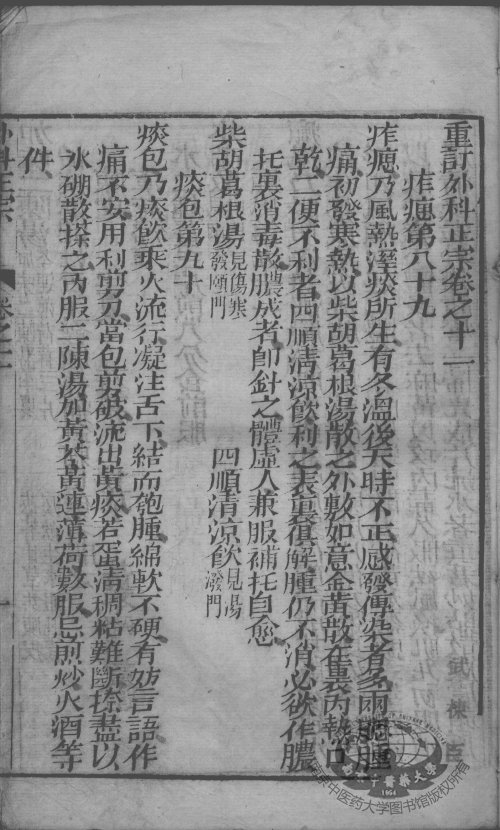 重訂外科正宗卷之十二
痄瘟第八十九
痄瘟乃風熱溼痰所生有冬溫後天時不正感發傳染者多兩腮腫
痛初發寒熱以柴胡葛根湯散之外敷如意金黃散在裏內熱口
乾二便不利者四順清涼飲利之表裏俱解腫仍不消必欲作膿
托裏消毒散膿成者卽針之體虛人兼服補托自愈
柴胡葛根湯見傷寒發頤門 四順清涼飲見湯潑門
痰包第九十
痰包乃痰飲乘火流行凝注舌下結而匏腫綿軟不硬有妨言語作
痛不安用利剪刀當包剪破流出黃痰若蛋清稠粘難斷捺盡以
水硼散搽之內服二陳湯加黃芩黃連薄荷數服忌煎炒火酒等
件
外科正宗 卷之十二